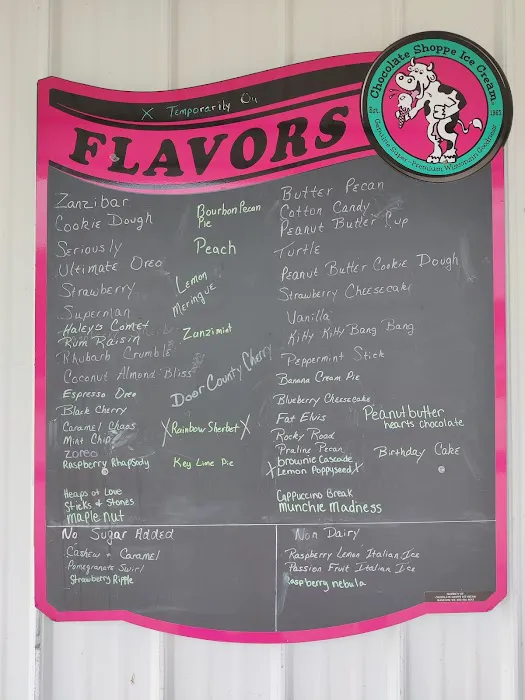 X Temporarily Ou
FLAVORS
Chocolate Shoppe Ice Cream
Est. 1962
Genuine Super-Premium Wisconsin Goodness
Zanzibar
Cookie Dough
Seriously
Ultimate Oreo
Strawberry
Superman
Haley's Comet
Rum Raisin
Rhubarb Crumble
Coconut Almond Bliss
Espresso Oreo
Black Cherry
Caramel Chaos
Mint Chip
Zoreo
Raspberry Rhapsody
Heaps of Love
Sticks & Stones
maple nut
Bourbon Pecan
Pie
Peach
Lemon
Meringue
Zanzimint
Door County Cherry
X Rainbow Sherbet X
Key Lime Pie
Butter Pecan
Cotton Candy
Peanut Butter Cup
Turtle
Peanut Butter Cookie Dough
Strawberry Cheesecake
Vanilla
Kitty Kitty Bang Bang
Peppermint Stick
Banana Cream Pie
Blueberry Cheesecake
Fat Elvis
Rocky Road
Praline Pecan
brownie Cascade
X Lemon Poppyseed X
Cappuccino Break
munchie madness
Peanut butter
hearts chocolate
Birthday Cake
No Sugar Added
Cashew + Caramel
Pomegranate Swirl
Strawberry Ripple
Non Dairy
Raspberry Lemon Italian Ice
Passion Fruit Italian Ice
Raspberry nebula